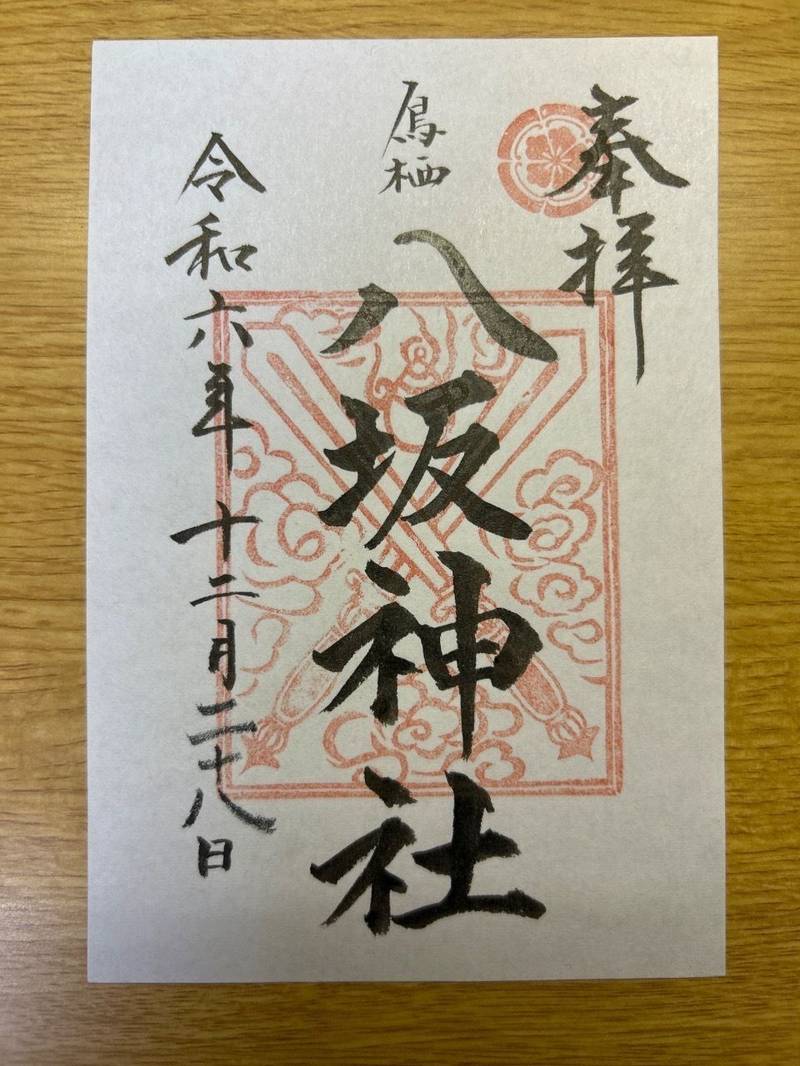 奉拝
鳥栖
八坂神社
令和六年十二月二十八日